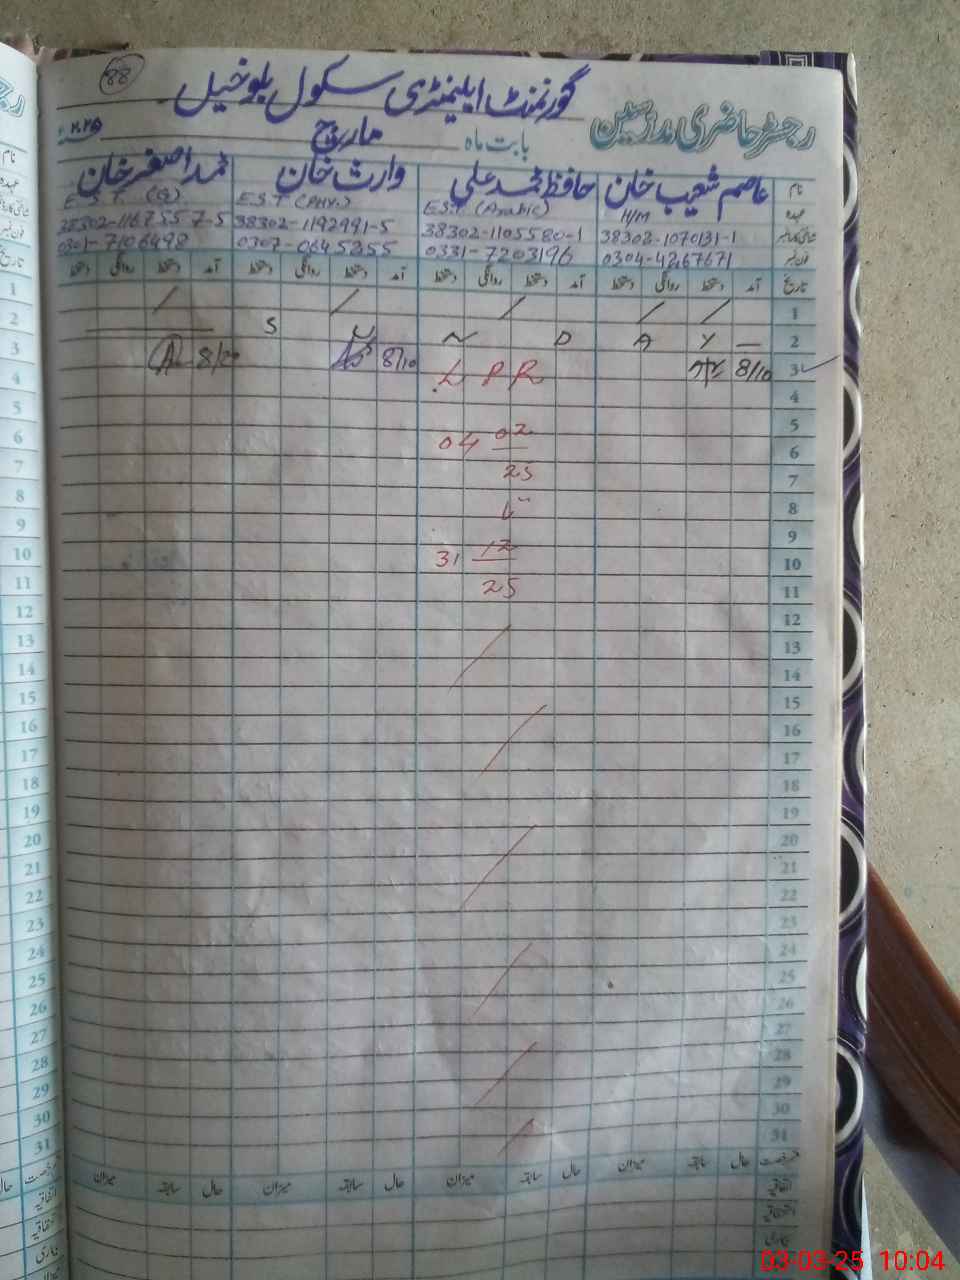 88
گورنمنٹ ایلیمنٹری سکول بلوخیل
رجسٹر حاضری مدرسین
بابت ماہ مارچ ۲۰۲۵ء
نام عاصم شعیب خان حافظ محمد علی وارث خان محمد اصغر خان
عہدہ H/M E.S.T (Arabic) E.S.T (PHY.) E.S.T (G)
38302-1070131-1 38302-1105580-1 38302-1192991-5 38302-1167557-5
فون نمبر 0304-4267671 0331-7203196 0307-0645255 0301-7106498
تاریخ آمد دستخط روانگی دستخط آمد دستخط روانگی دستخط آمد دستخط روانگی دستخط آمد دستخط روانگی دستخط
1
2 S U N D A Y
3 8/10 L P R 8/10
4
5
6 04 02/25
7
8
9
10 31 12/25
11
12
13
14
15
16
17
18
19
20
21
22
23
24
25
26
27
28
29
30
31
رخصت حال سابقہ میزان حال سابقہ میزان حال سابقہ میزان حال سابقہ میزان
اتفاقیہ
بیماری
03-03-25 10:04